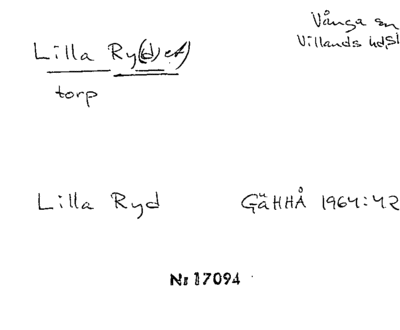 Lilla Ry(d)et)
Vånga sn
Villands hd, Sl
torp
Lilla Ryd
GäHHÅ 1964:42
Nr 17094